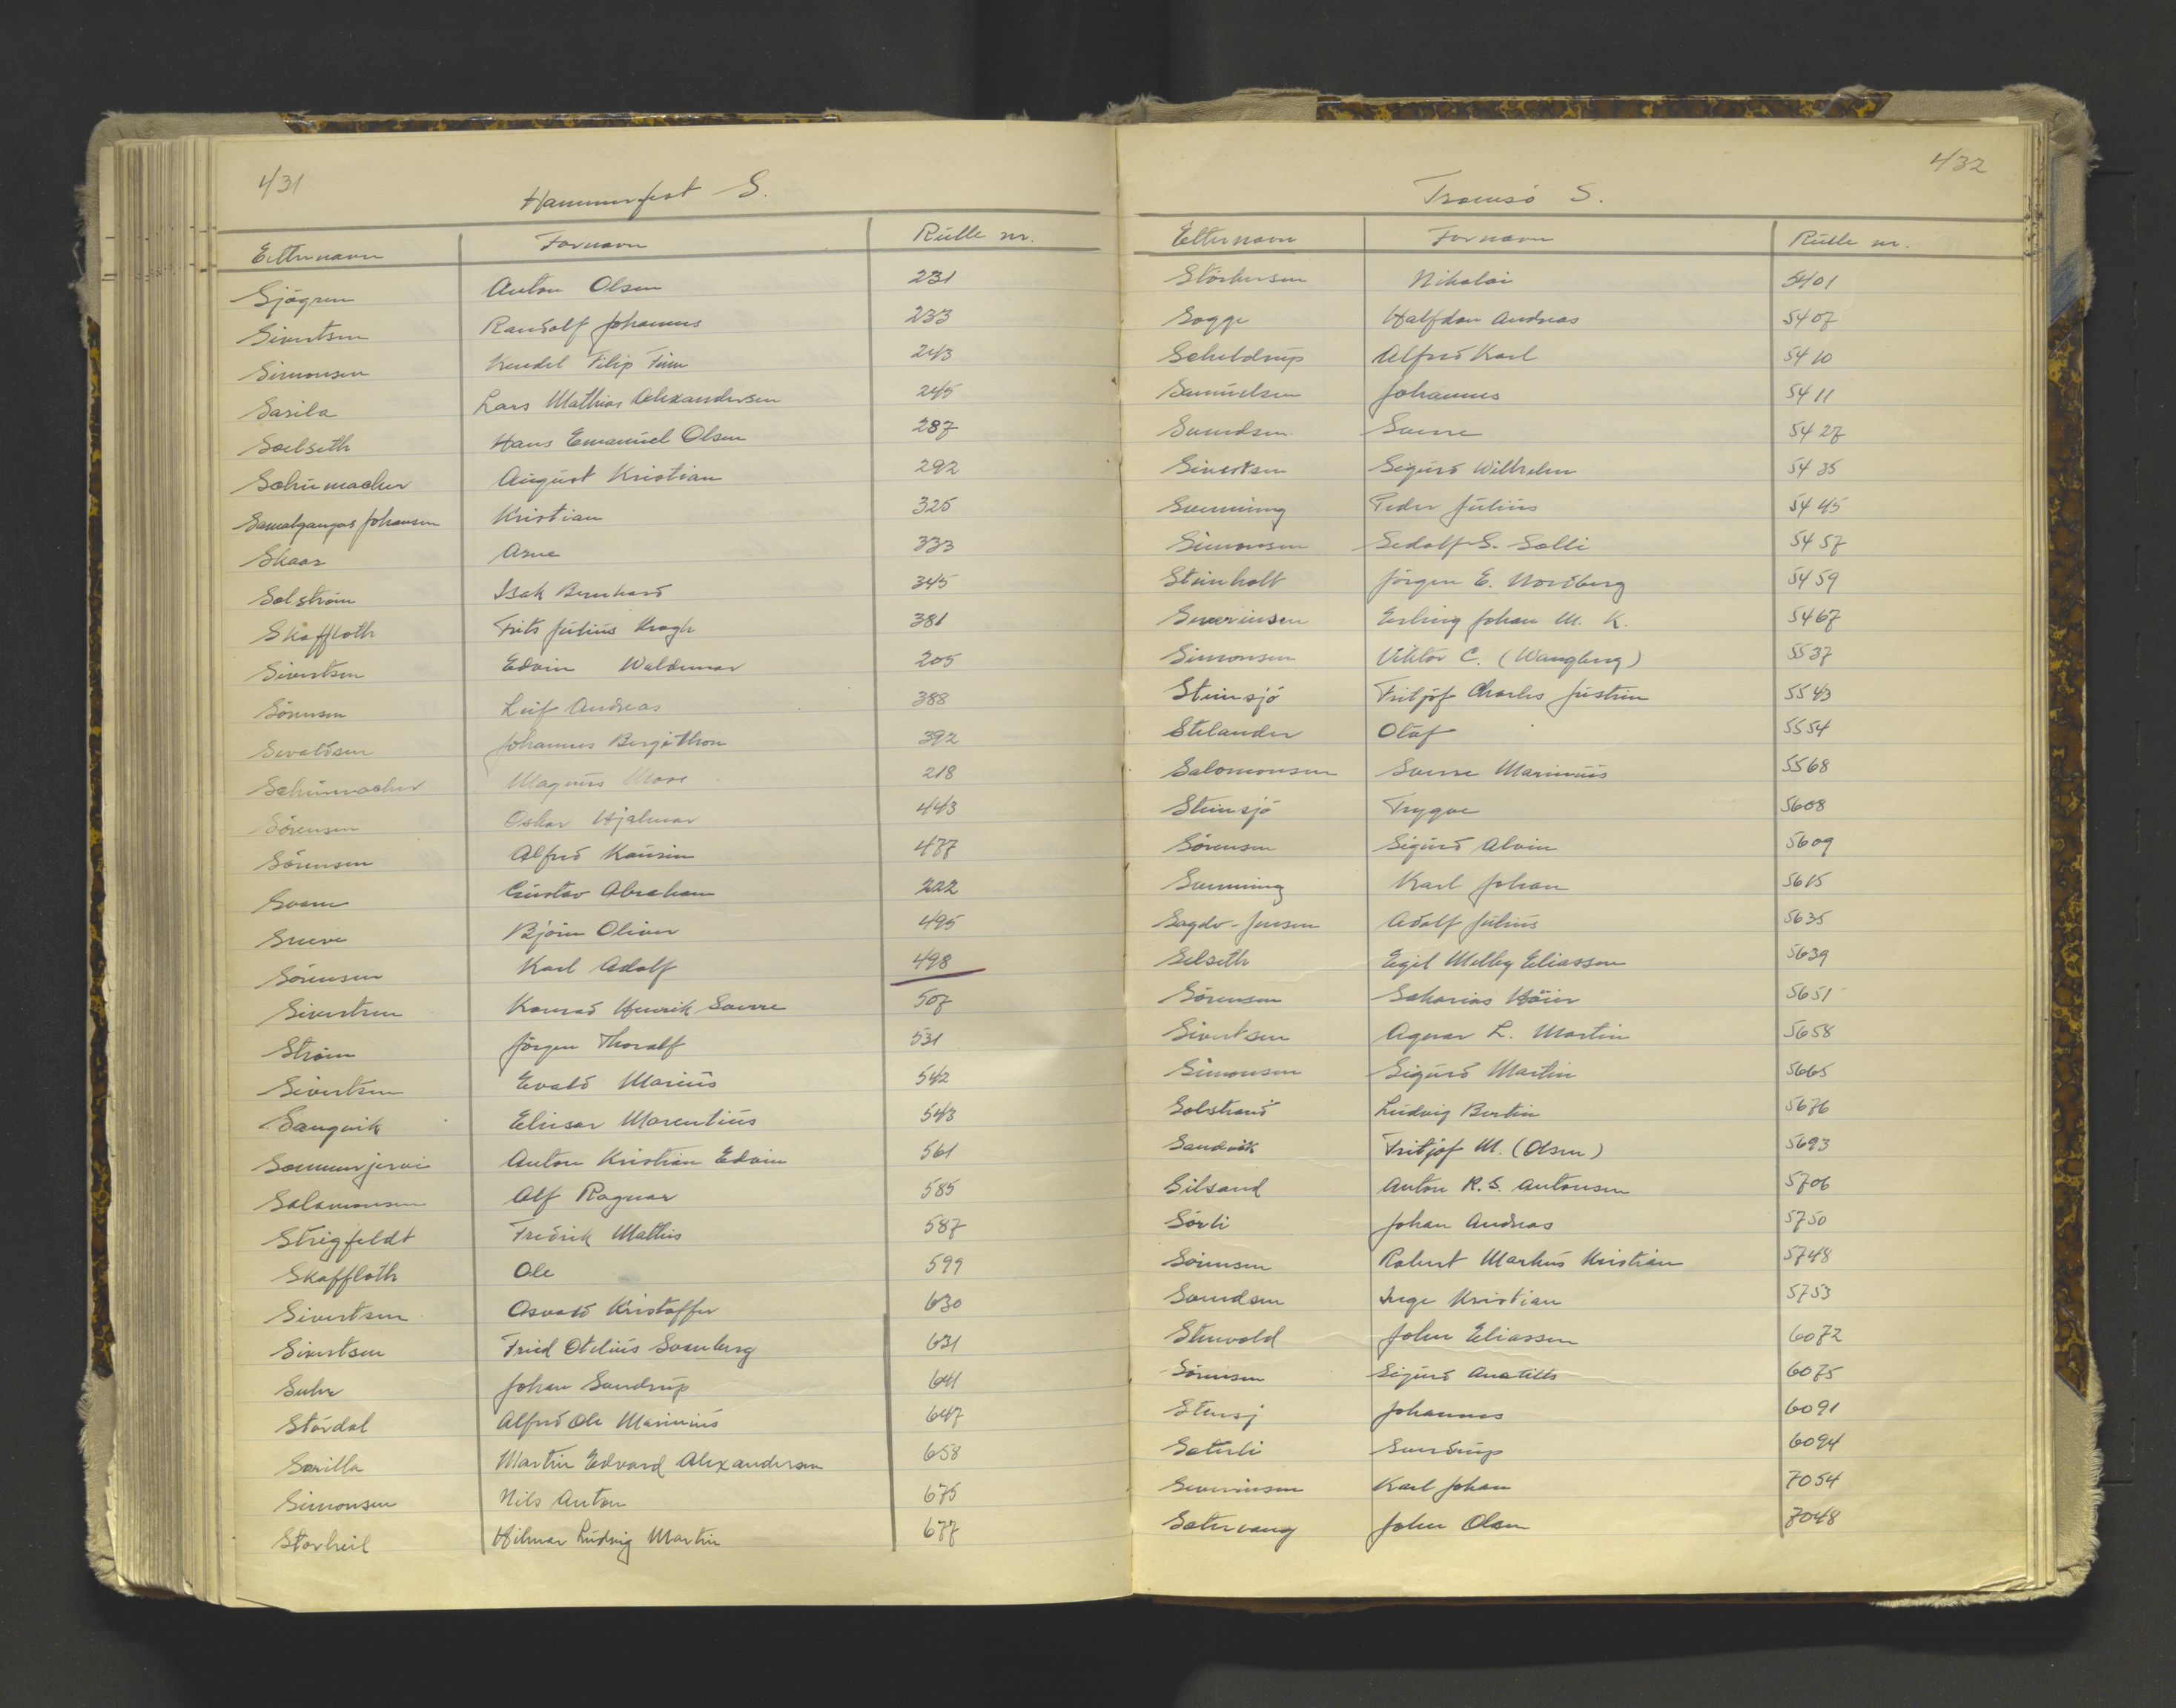 431
Hammerfest S.
Etternavn Fornavn Rulle nr.
Sjögren Anton Olsen 231
Sivertsen Randolf Johannes 233
Simonsen Kendel Filip Finn 243
Sarila Lars Mathias Alexandersen 245
Soelseth Hans Emanuel Olsen 287
Schumacher August Kristian 292
Samalgangas Johansen Kristian 325
Skaar Arne 333
Solström Isak Bernhard 345
Skaffloth Frits Julius Krogh 381
Sivertsen Edvin Waldemar 205
Sörensen Leif Andreas 388
Sivaldsen Johannes Bergithon 392
Schumacher Magnus 218
Sörensen Oskar Hjalmar 443
Sörensen Alfred Kausin 477
Svane Gustav Abraham 222
Sneve Björn Oliver 495
Sörensen Karl Adolf 498
Sivertsen Konrad Henrik Sverre 507
Ström Jörgen Thoralf 531
Sivertsen Evald Marius 542
Sangvik Elisar Marentius 543
Sommerjervi Anton Kristian Edvin 561
Salamonsen Alf Ragnar 585
Strigfeldt Fredrik Mathis 587
Skaffloth Ole 599
Sivertsen Osvald Kristoffer 630
Sivertsen Fried Otelius Svenberg 631
Suhr Johan Sverdrup 641
Stördal Alfred Ole Marinius 647
Sarilla Martin Edvard Alexandersen 658
Simonsen Nils Anton 675
Storheil Hilmar Ludvig Martin 677
432
Tromsö S.
Etternavn Fornavn Rulle nr.
Störkersen Nikolai 5401
Sogge Halfdan Andreas 5407
Scheldrup Alfred Karl 5410
Samuelsen Johannes 5411
Svendsen Sverre 5427
Sivertsen Sigurd Wilhelm 5435
Svenning Peder Julius 5445
Simonsen Sedolf S. Solli 5457
Steinholt Jörgen E. Nordberg 5459
Severinsen Erling Johan M. K. 5467
Simonsen Viktor C. (Wangberg) 5537
Steinsjö Fritjof Charles Justin 5543
Stelander Olaf 5554
Salomonsen Sverre Marinius 5568
Steinsjö Trygve 5608
Sörensen Sigurd Alvin 5609
Svenning Karl Johan 5615
Sagdv-Jensen Adolf Julius 5635
Selseth Egil Melby Eliassen 5639
Sörensen Sakarias Höier 5651
Sivertsen Agnar L. Martin 5658
Simonsen Sigurd Martin 5665
Solstrand Ludvig Bertin 5676
Sandvik Fritjof M. (Olsen) 5693
Silsand Anton R. S. Antonsen 5706
Sörli Johan Andreas 5750
Sörensen Robert Markus Kristian 5748
Svendsen Inge Kristian 5753
Stenvold John Eliassen 6072
Sörensen Sigurd 6075
Stensj Johannes 6091
Saterli Sverdrup 6094
Severinsen Karl Johan 7054
Satervang John Olsen 7048